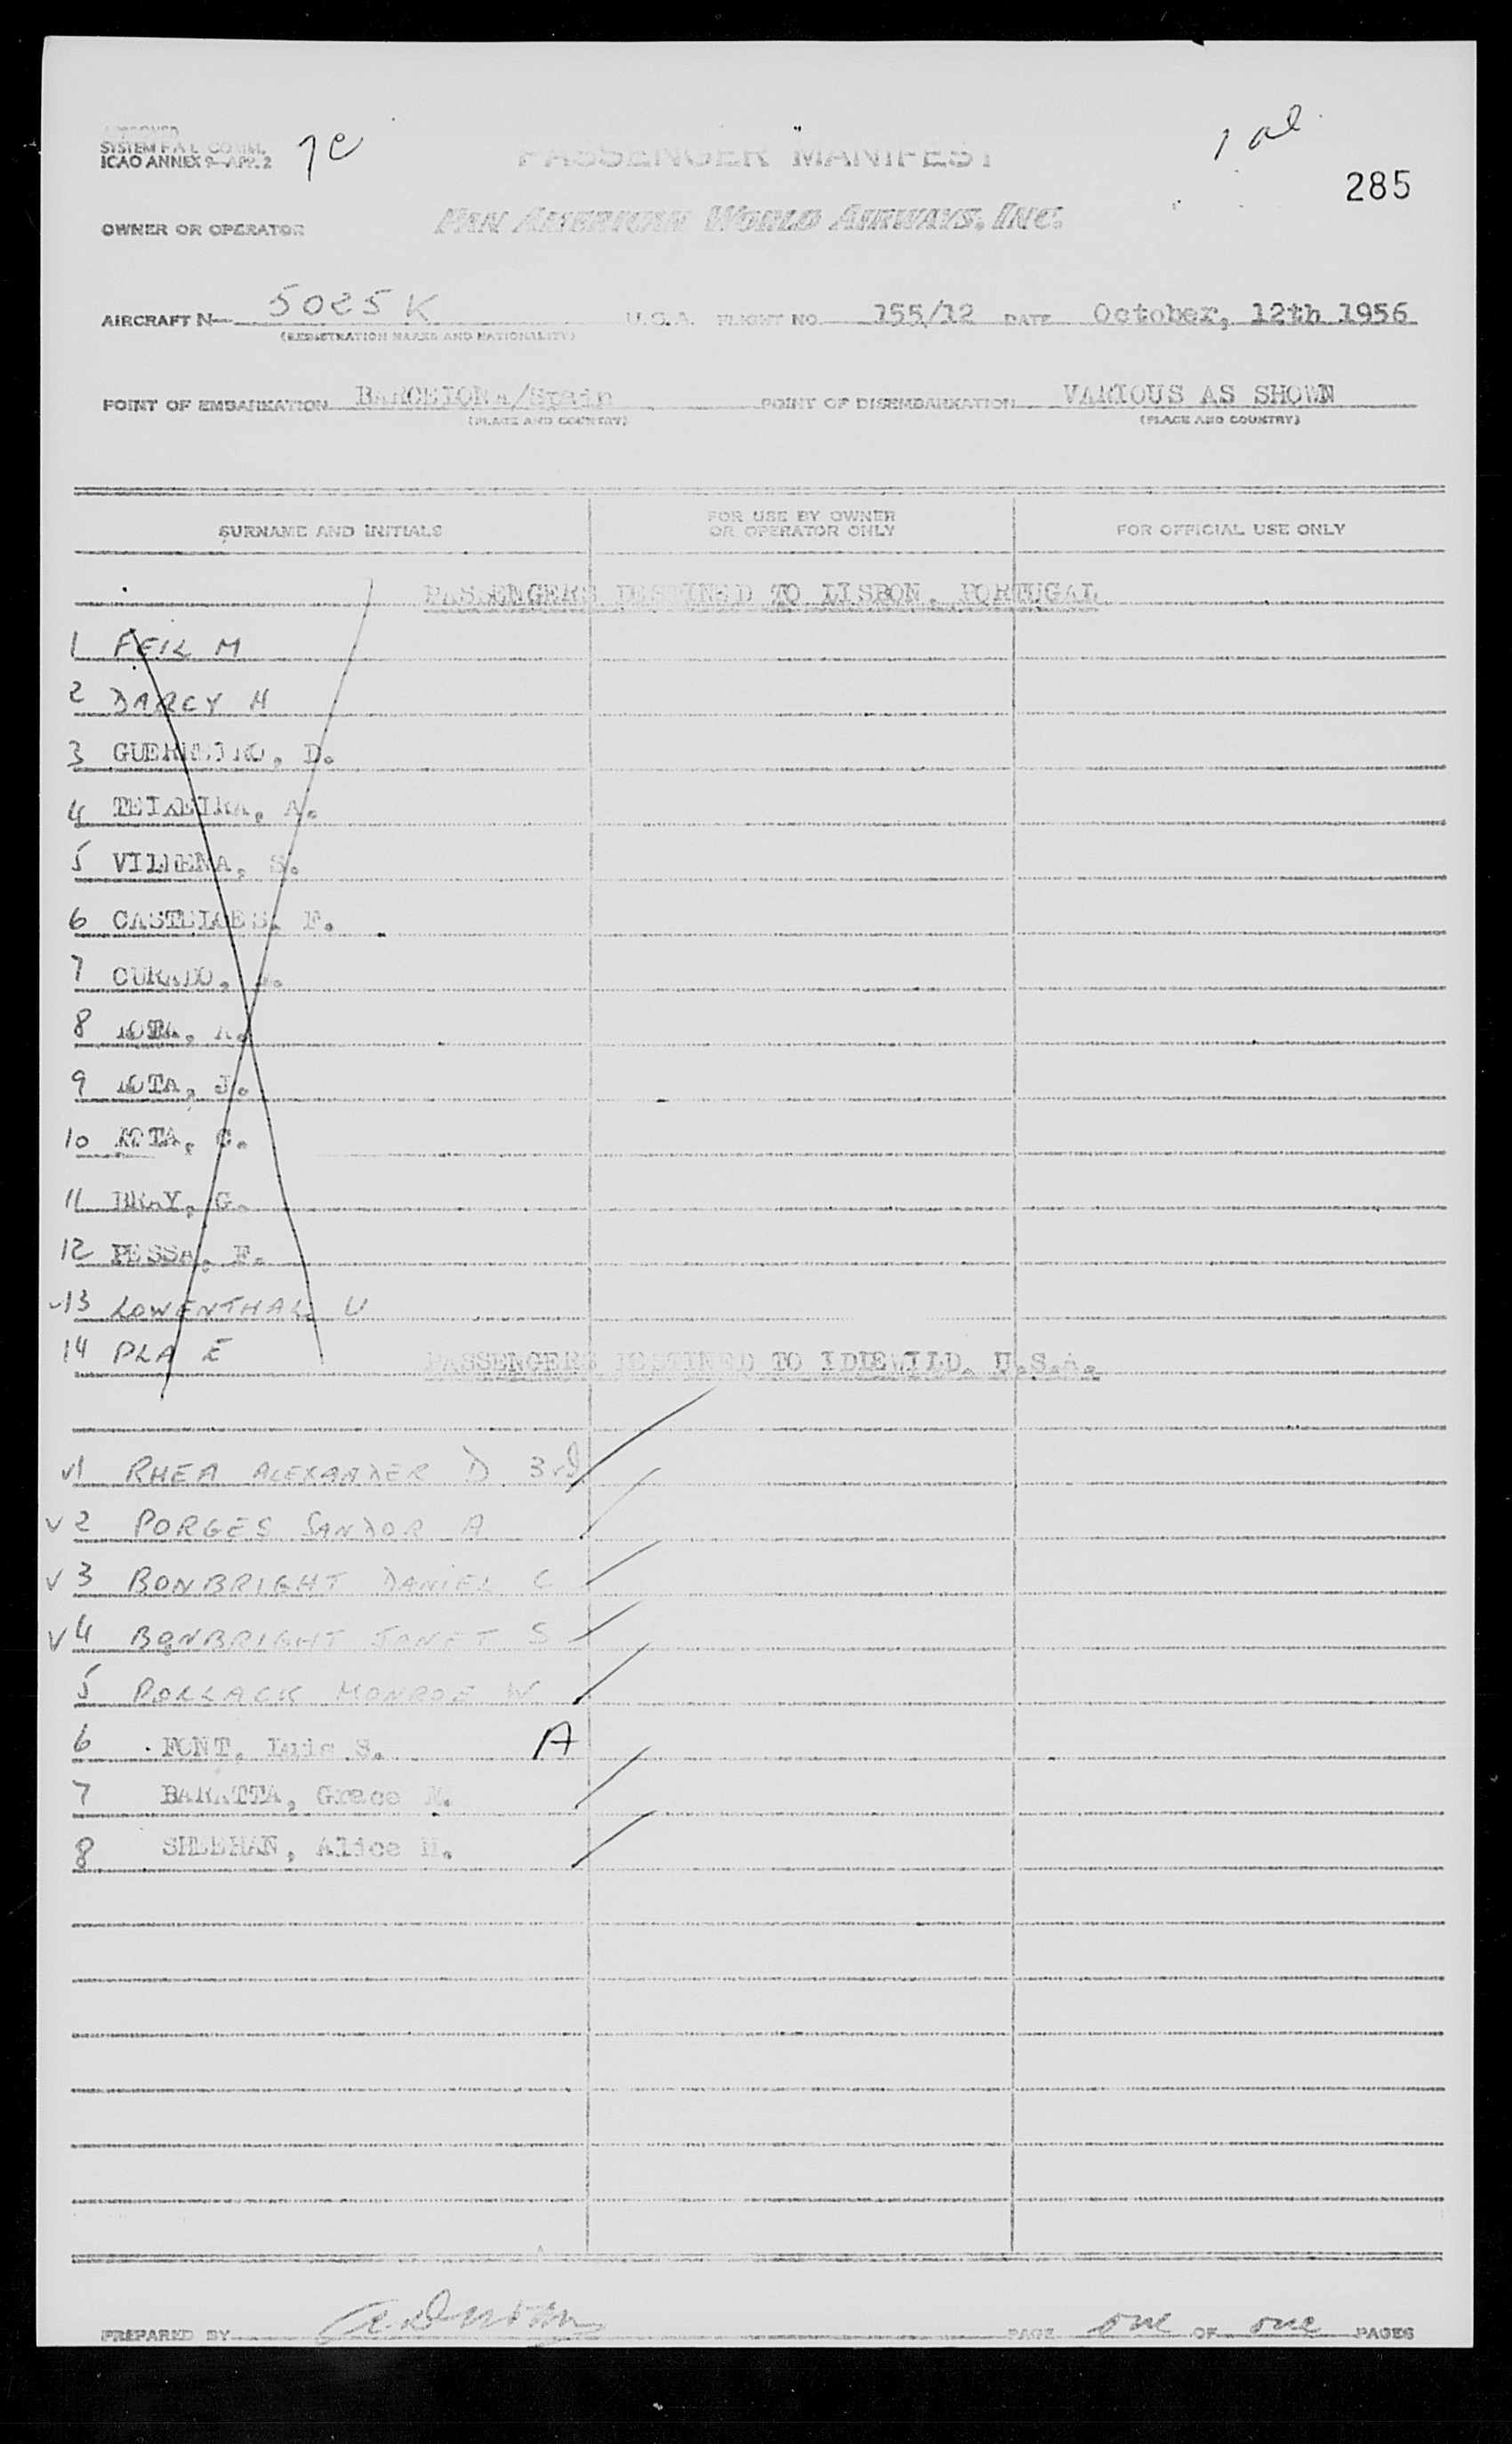 APPROVED
SYSTEM FAL COMM.
ICAO ANNEX 9-APP. 2
PASSENGER MANIFEST
285
OWNER OR OPERATOR PAN AMERICAN WORLD AIRWAYS, INC.
AIRCRAFT N- 5025K U.S.A. FLIGHT NO. 155/12 DATE October, 12th 1956
(REGISTRATION MARKS AND NATIONALITY)
POINT OF EMBARKATION BARCELONA/Spain POINT OF DISEMBARKATION VARIOUS AS SHOWN
(PLACE AND COUNTRY) (PLACE AND COUNTRY)
SURNAME AND INITIALS FOR USE BY OWNER OR OPERATOR ONLY FOR OFFICIAL USE ONLY
PASSENGERS DESTINED TO LISBON, PORTUGAL
1 FEIL M
2 DARCY H
3 GUERREIRO, D.
4 TEIXEIRA, A.
5 VILHENA, S.
6 CASTELOES, F.
7 CURADO, J.
8 MOTA, A.
9 MOTA, J.
10 MOTA, C.
11 BRAY, G.
12 PESSA, F.
13 LOWENTHAL U
14 PLA E
PASSENGERS DESTINED TO IDLEWILD, U.S.A.
1 RHEA ALEXANDER D 3rd
2 PORGES SANDOR A
3 BONBRIGHT DANIEL C
4 BONBRIGHT JANET S
5 POLLACK MONROE W
6 FONT, Luis S. A
7 BARATTA, Grace M.
8 SHEEHAN, Alice H.
PREPARED BY PAGE one OF one PAGES